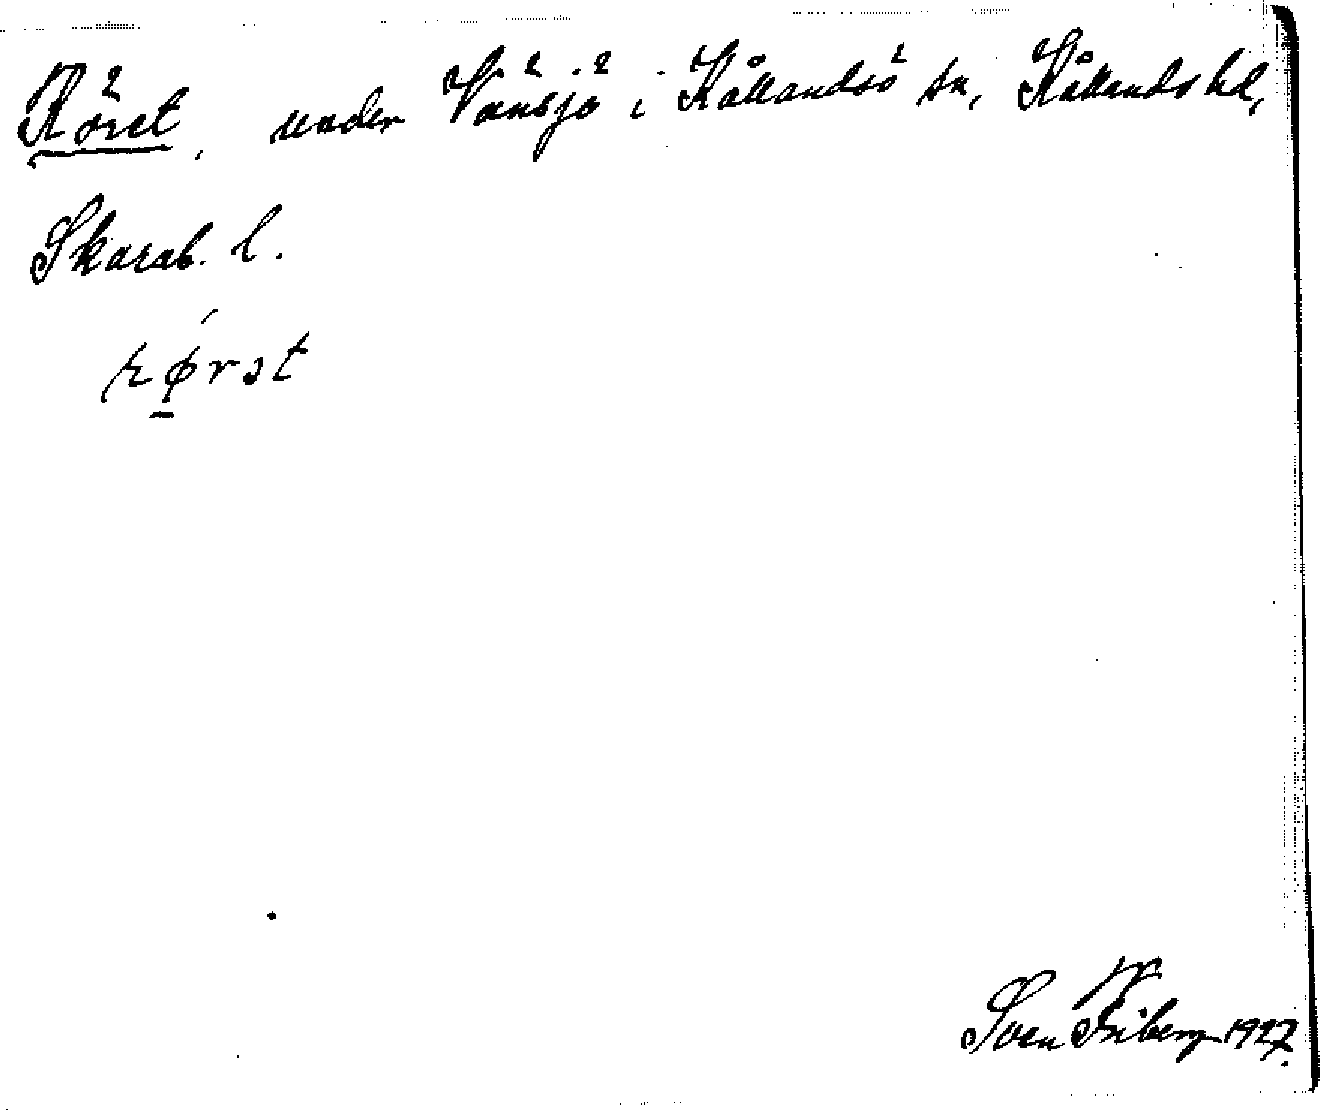 Röret, under Vänsjö i Kållandsö sn, Kållands hd,
Skarab. l.
rǿ̱rət
Sven Friberg 1927.